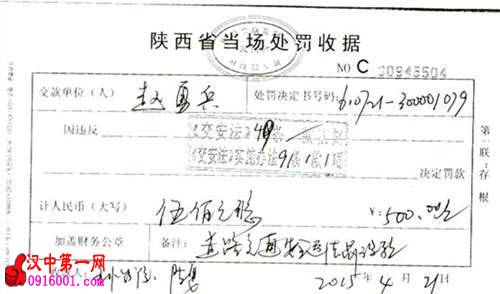 陕西省当场处罚收据
NO C 00945504
交款单位(人) 赵勇兵 处罚决定书号码: 610721-300001079
因违反 《交安法》49条
《交安法》实施办法91条1款1项
决定罚款
计人民币(大写) 伍佰元整 ¥:500.00元
加盖财务公章 备注:
2015年4月21日
第一联:存根
汉中第一网
0916001.com